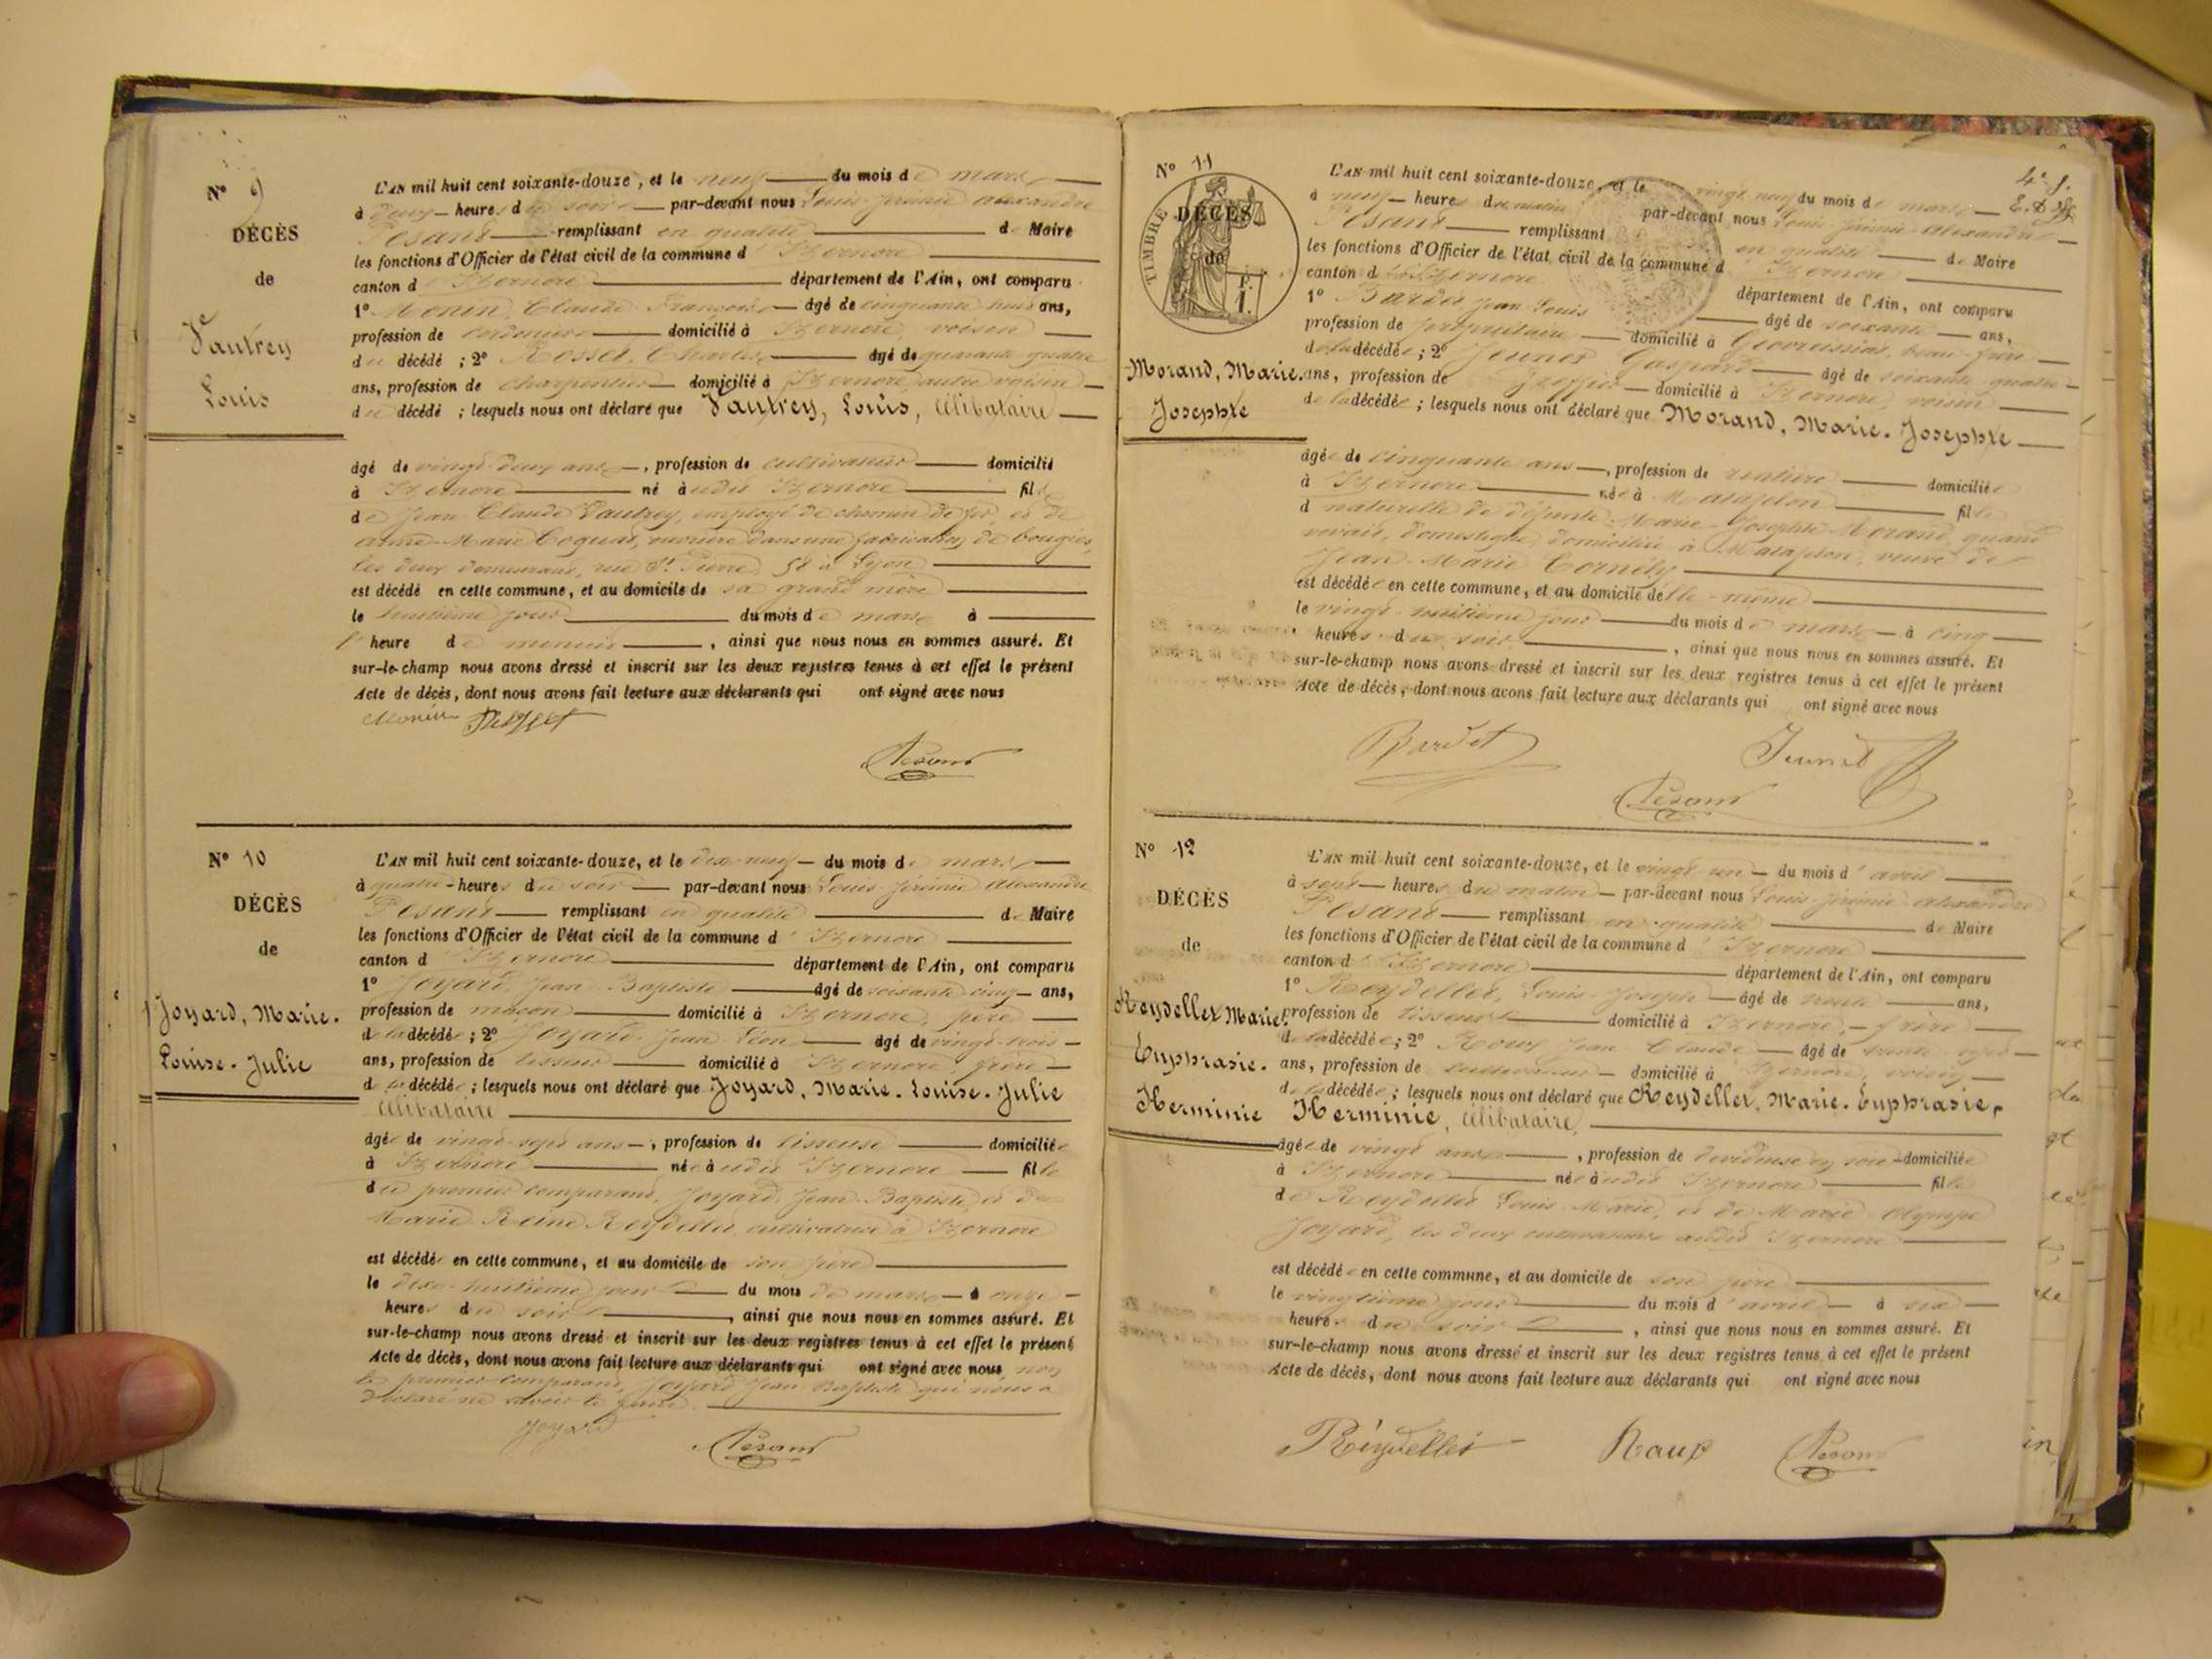 N° 9
DÉCÈS
de
Vautrey
Louis
L'AN mil huit cent soixante-douze, et le neuf du mois de mars
à deux heures du soir par-devant nous Louis-Jérémie Alexandre
Pesant remplissant en qualité de Maire
les fonctions d'Officier de l'état civil de la commune d'Izernore
canton d'Izernore département de l'Ain, ont comparu
1° Monin, Claude François âgé de cinquante huit ans,
profession de domicilié à Izernore, voisin
du décédé ; 2° Rosset, Charles âgé de quarante quatre
ans, profession de charpentier domicilié à Izernore, autre voisin
du décédé ; lesquels nous ont déclaré que Vautrey, Louis, célibataire
âgé de vingt-deux ans, profession de cultivateur domicilié
à Izernore né àudit Izernore fils
de Jean-Claude Vautrey, employé de chemin de fer, et de
Anne-Marie Coquat, ouvrière dans une fabrication de bougies,
les deux demeurant, rue St Pierre, à Lyon
est décédé en cette commune, et au domicile de sa grand mère
le huitième jour du mois de mars à
l'heure de minuit, ainsi que nous nous en sommes assuré. Et
sur-le-champ nous avons dressé et inscrit sur les deux registres tenus à cet effet le présent
Acte de décès, dont nous avons fait lecture aux déclarants qui ont signé avec nous
Monin Rosset
Pesant
N° 10
DÉCÈS
de
Joyard, Marie-
Louise-Julie
L'AN mil huit cent soixante-douze, et le dix-neuf du mois de mars
à quatre heures du soir par-devant nous Louis-Jérémie Alexandre
Pesant remplissant en qualité de Maire
les fonctions d'Officier de l'état civil de la commune d'Izernore
canton d'Izernore département de l'Ain, ont comparu
1° Joyard, Jean Baptiste âgé de soixante cinq ans,
profession de maçon domicilié à Izernore, père
de la décédée ; 2° Joyard, Jean Léon âgé de vingt-trois
ans, profession de tisseur domicilié à Izernore, frère
de la décédée ; lesquels nous ont déclaré que Joyard, Marie-Louise-Julie
célibataire
âgée de vingt-sept ans, profession de tisseuse domiciliée
à Izernore née àudit Izernore fille
du premier comparant, Joyard, Jean-Baptiste, et de
Marie Reine Reydellet, cultivatrice à Izernore
est décédée en cette commune, et au domicile de son père
le dix-huitième jour du mois de mars à onze
heures du soir, ainsi que nous nous en sommes assuré. Et
sur-le-champ nous avons dressé et inscrit sur les deux registres tenus à cet effet le présent
Acte de décès, dont nous avons fait lecture aux déclarants qui ont signé avec nous, non
le premier comparant, Joyard Jean Baptiste qui nous a
déclaré ne savoir le faire.
Joyard
Pesant
4e f.
N° 11
TIMBRE
DÉCÈS
de
Morand, Marie-
Josephte
L'AN mil huit cent soixante-douze, et le vingt neuf du mois de mars
à neuf heures du matin par-devant nous Louis-Jérémie-Alexandre
Pesant remplissant en qualité de Maire
les fonctions d'Officier de l'état civil de la commune d'Izernore
canton d'Izernore département de l'Ain, ont comparu
1° Bardet Jean-Louis âgé de soixante ans,
profession de propriétaire domicilié à Geovreissiat, beau-frère
de la décédée ; 2° Jeunet Gaspard âgé de soixante quatre
ans, profession de greffier domicilié à Izernore, voisin
de la décédée ; lesquels nous ont déclaré que Morand, Marie-Josephte
âgée de cinquante ans, profession de rentière domiciliée
à Izernore née à Matafelon fille
d naturelle de défunte Marie-Josephte Morand, quand
vivait, domestique, domiciliée à Matafelon, veuve de
Jean-Marie Cornély
est décédée en cette commune, et au domicile d'elle-même
le vingt-huitième jour du mois de mars à cinq
heures du soir, ainsi que nous nous en sommes assuré. Et
sur-le-champ nous avons dressé et inscrit sur les deux registres tenus à cet effet le présent
Acte de décès, dont nous avons fait lecture aux déclarants qui ont signé avec nous
Bardet Jeunet
Pesant
N° 12
DÉCÈS
de
Reydellet Marie-
Euphrasie-
Herminie
L'AN mil huit cent soixante-douze, et le vingt un du mois d'avril
à sept heures du matin par-devant nous Louis-Jérémie Alexandre
Pesant remplissant en qualité de Maire
les fonctions d'Officier de l'état civil de la commune d'Izernore
canton d'Izernore département de l'Ain, ont comparu
1° Reydellet, Louis-Joseph âgé de trente ans,
profession de tisseur domicilié à Izernore, frère
de la décédée ; 2° Roux Jean Claude âgé de trente-sept
ans, profession de cultivateur domicilié à Izernore, voisin
de la décédée ; lesquels nous ont déclaré que Reydellet, Marie-Euphrasie-
Herminie, célibataire,
âgée de vingt ans, profession de dévideuse en soie domiciliée
à Izernore née àudit Izernore fille
de Reydellet Louis-Marie, et de Marie-Olympe
Joyard, les deux cultivateurs audit Izernore
est décédée en cette commune, et au domicile de son père
le vingtième jour du mois d'avril à six
heures du soir, ainsi que nous nous en sommes assuré. Et
sur-le-champ nous avons dressé et inscrit sur les deux registres tenus à cet effet le présent
Acte de décès, dont nous avons fait lecture aux déclarants qui ont signé avec nous
Reydellet Roux Pesant